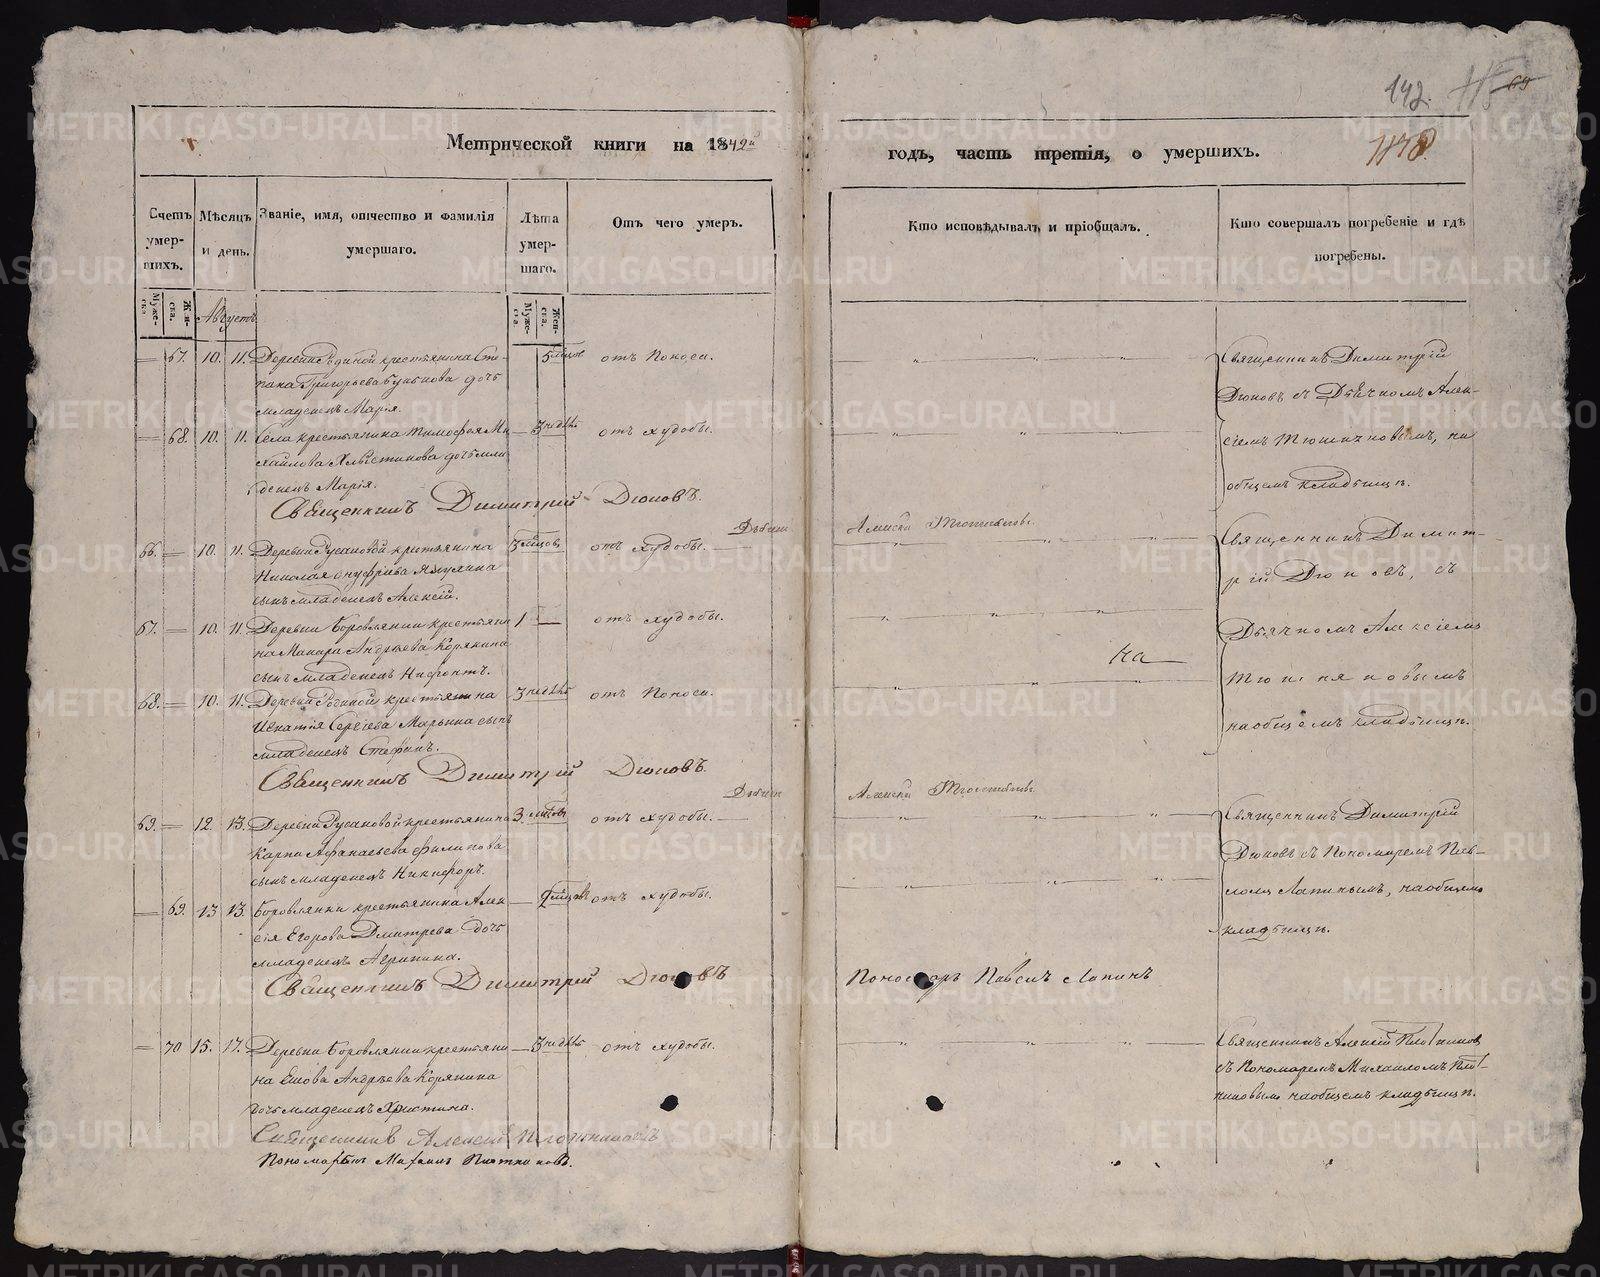 142.
Метрической книги на 1842й
годъ, часть третія, о умершихъ.
Счетъ умер-шихъ.
Мѣсяцъ и день.
Званіе, имя, отчество и фамилія умершаго.
Лѣта умер-шаго.
Отъ чего умеръ.
Кто исповѣдывалъ и пріобщалъ.
Кто совершалъ погребеніе и гдѣ погребены.
Муже-ска.
Жен-ска.
Августъ
Муже-ска.
Жен-ска.
67. 10. 11. Деревни крестьянина Сте-
пана Григорьева дочь
младенецъ Марія.
5 мѣсцов
отъ поноса.
Священникъ Димитрій
Дюковъ съ Дьячкомъ Алек-
сіемъ, на
общемъ кладбищѣ.
68. 10. 11. Села крестьянина Тимофея Ми-
хайлова дочь мла-
денецъ Марія.
3 недѣль
отъ худобы.
Священникъ Димитрій Дюковъ.
Дьячекъ Алексѣй
66. 10. 11. Деревни Русаковой крестьянина
Николая Ануфріева
сынъ младенецъ Алексій.
3 мѣсцов
отъ худобы.
Священникъ Димит-
рій Дюковъ, съ
Дьячкомъ Алексіемъ
на общемъ кладбищѣ.
67. 10. 11. Деревни Боровлянки крестьяни-
на Макара Андреева Корякина
сынъ младенецъ Нифонтъ.
1
отъ худобы.
на
68. 10. 11. Деревни крестьянина
Игнатія Сергіева Марьина сынъ
младенецъ Стефанъ.
3 недѣль
отъ поноса.
Священникъ Димитрій Дюковъ.
Дьячекъ Алексѣй
69. 12. 13. Деревни Русаковой крестьянина
Карпа Афанасьева Филипова
сынъ младенецъ Никифоръ.
3. мѣсцов
отъ худобы.
Священникъ Димитрій
Дюковъ съ Пономаремъ Пав-
ломъ Лапинымъ, на общемъ
кладбищѣ.
69. 13 13. Боровлянки крестьянина Алек-
сія Егорова Дмитрева дочь
младенецъ Агрипина.
мѣсцов
отъ худобы.
Священникъ Димитрій Дюковъ
Пономарь Павелъ Лапинъ
70 15. 17. Деревни Боровлянки крестьяни-
на Андреева Корякина
дочь младенецъ Христина.
3 недѣль
отъ худобы.
Священникъ Алексій Плотниковъ
съ Пономаремъ Михаиломъ Плот-
никовымъ на общемъ кладбищѣ.
Священникъ Алексій Плотниковъ
Пономарь Михаилъ Плотниковъ.
METRIKI.GASO-URAL.RU